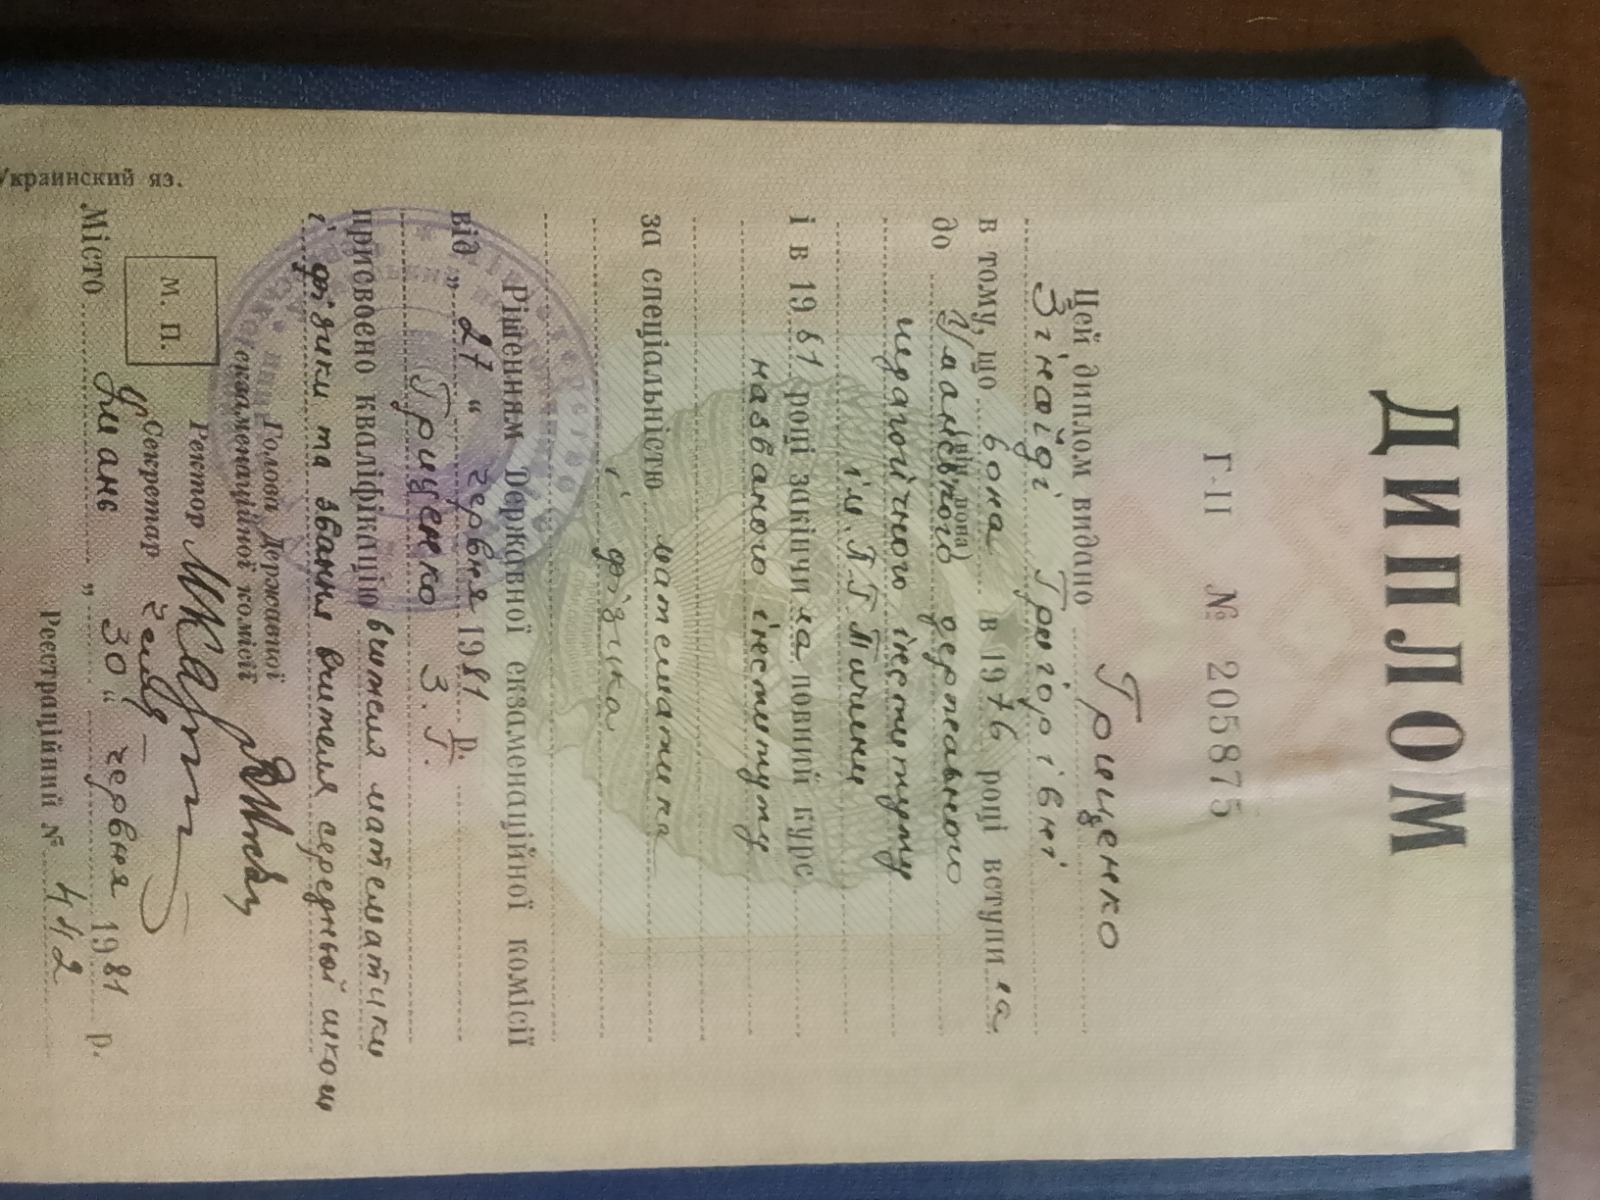 ДИПЛОМ
Г-II № 205875
Цей диплом видано Гриценко
Зінаїді Григорівні
в тому, що вона в 1976 році вступила
(він, вона)
до Уманського державного
педагогічного інституту
ім. П.Г. Тичини
і в 1981 році закінчила повний курс
названого інституту
за спеціальністю математика
і фізика
Рішенням Державної екзаменаційної комісії
від „27“ червня 1981 р.
Гриценко З.Г.
присвоєно кваліфікацію вчителя математики
і фізики та звання вчителя середньої школи
Голова Державної
екзаменаційної комісії
Ректор
Секретар
М. П.
Місто Умань „30“ червня 1981 р.
Реєстраційний № 442
Украинский яз.